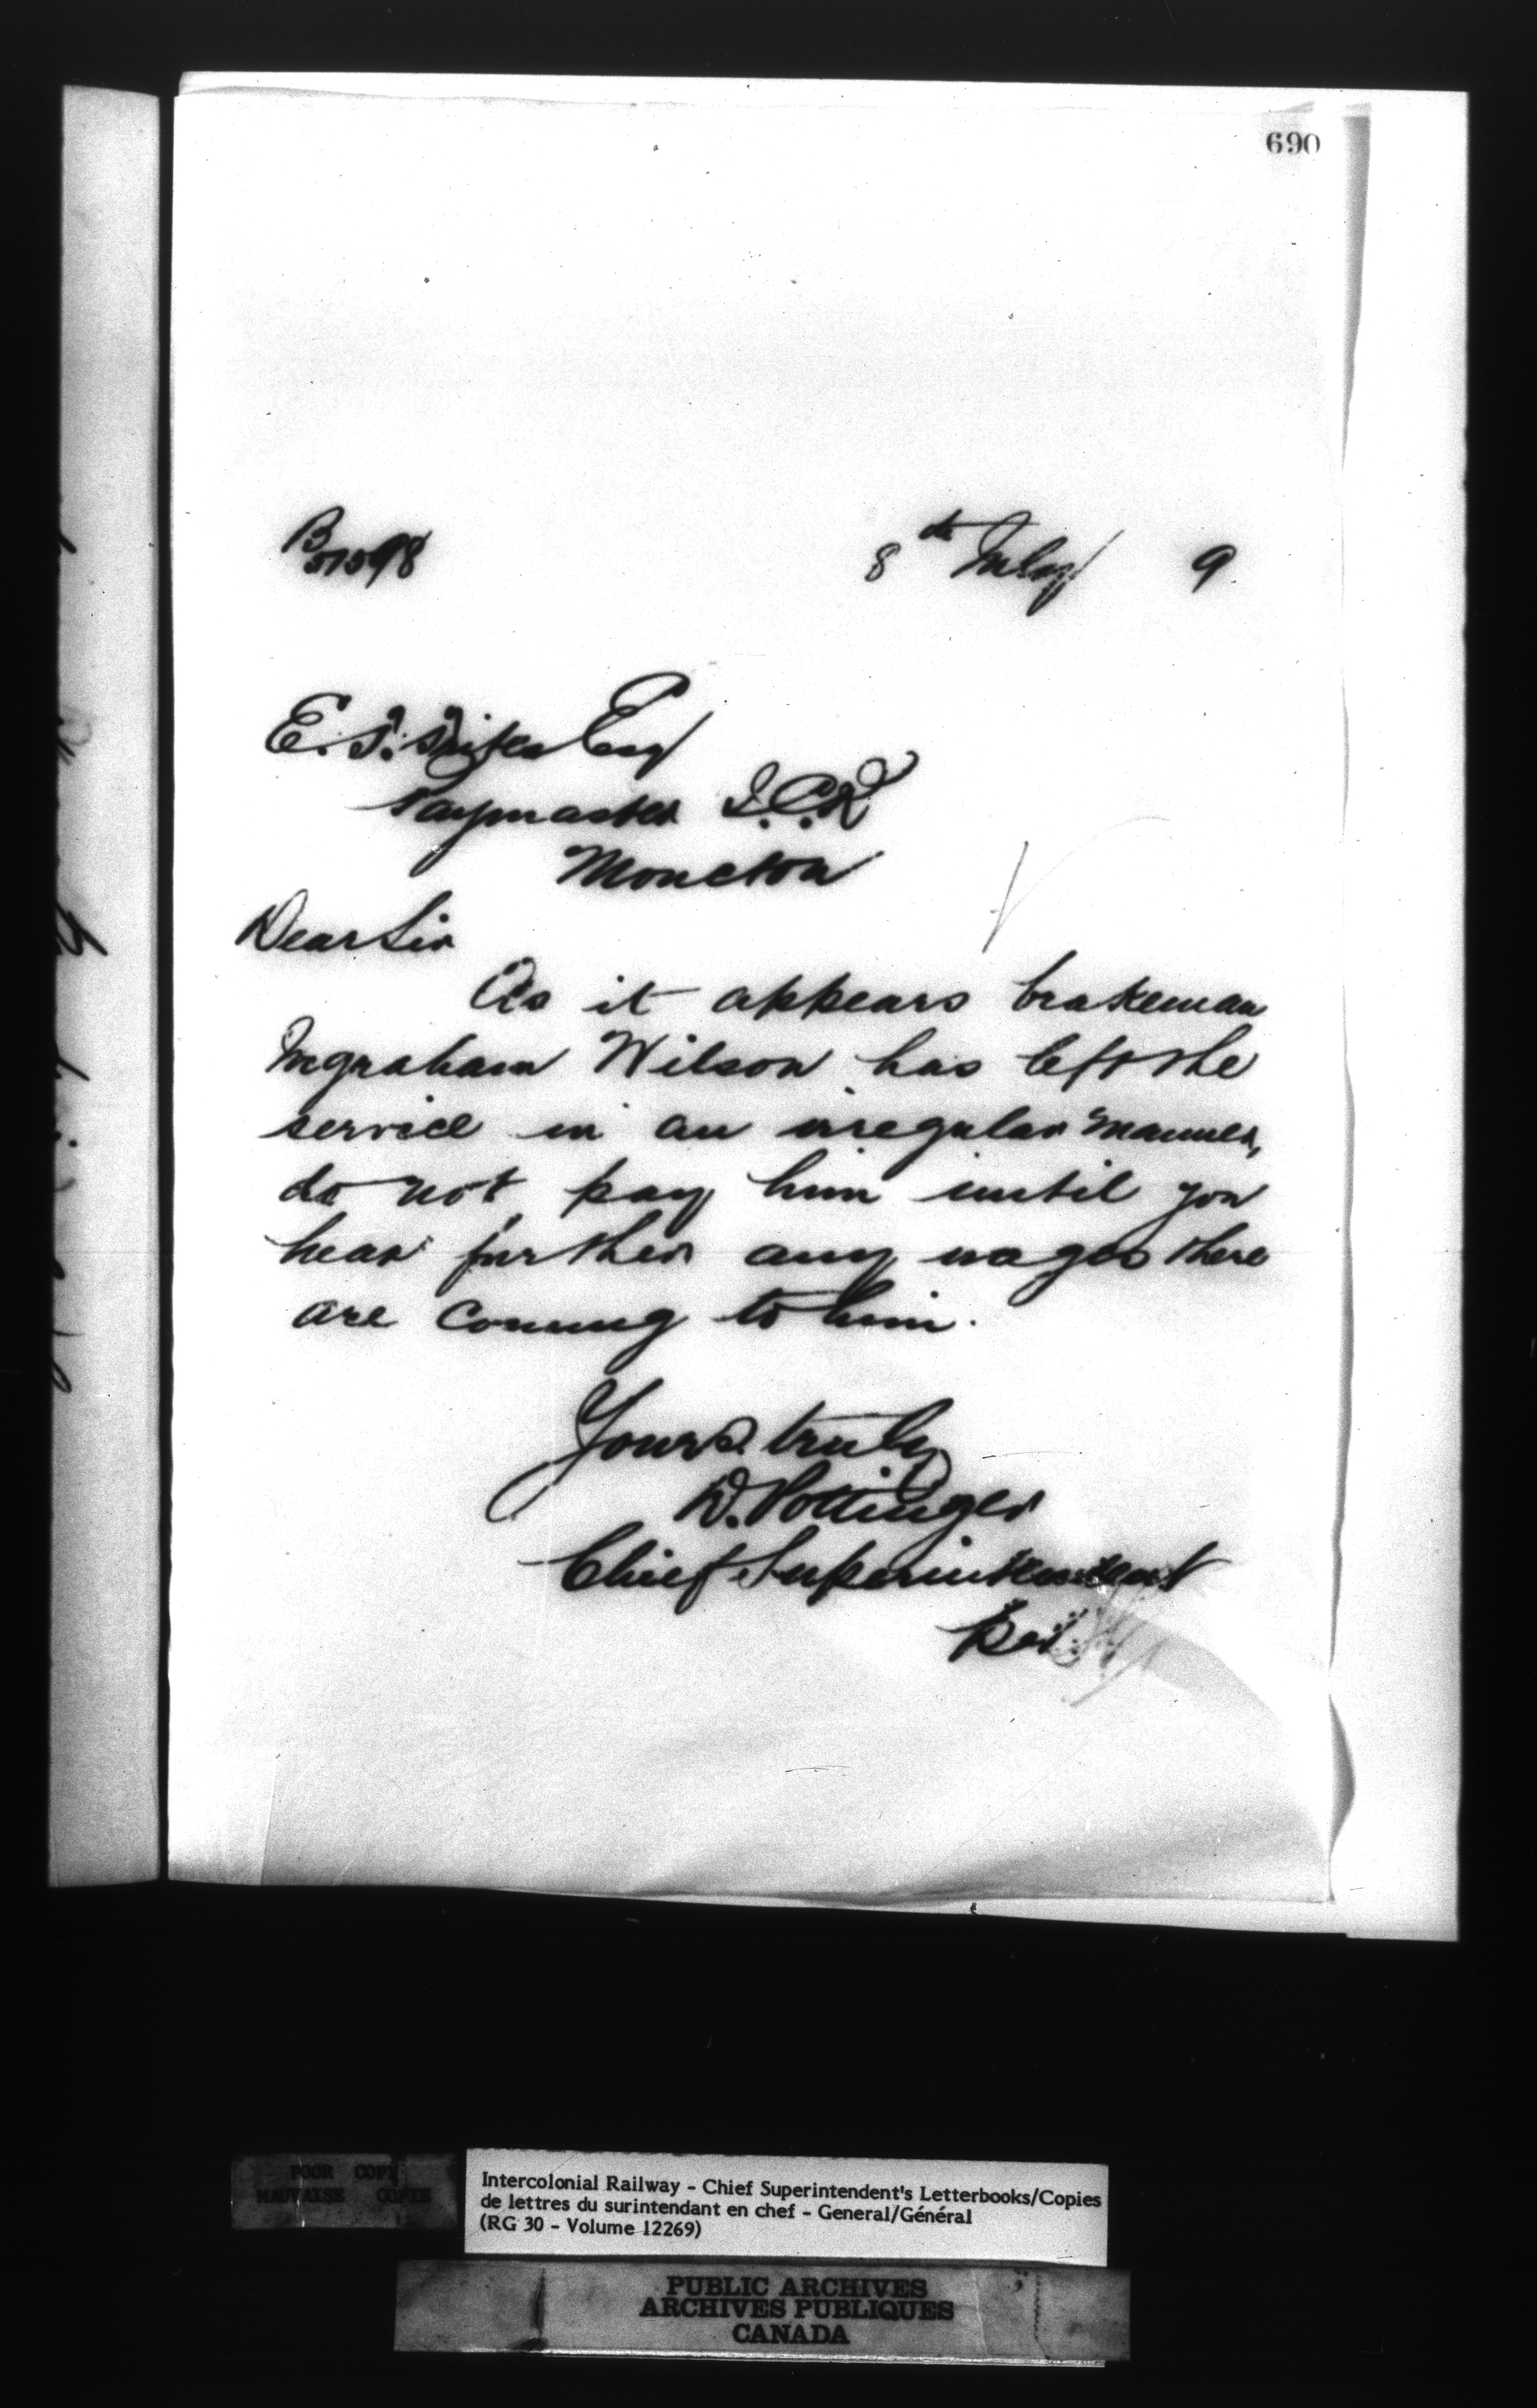 690
B 51598
8th July 9
E. T. Trites Esq
Paymaster I.C.R
Moncton
Dear Sir
As it appears brakeman
Ingraham Wilson has left the
service in an irregular manner,
do not pay him until you
hear further any wages there
are coming to him.
Yours truly
D. Pottinger
Chief Superintendent
POOR COPY
MAUVAISE COPIE
Intercolonial Railway - Chief Superintendent's Letterbooks/Copies
de lettres du surintendant en chef - General/Général
(RG 30 - Volume 12269)
PUBLIC ARCHIVES
ARCHIVES PUBLIQUES
CANADA